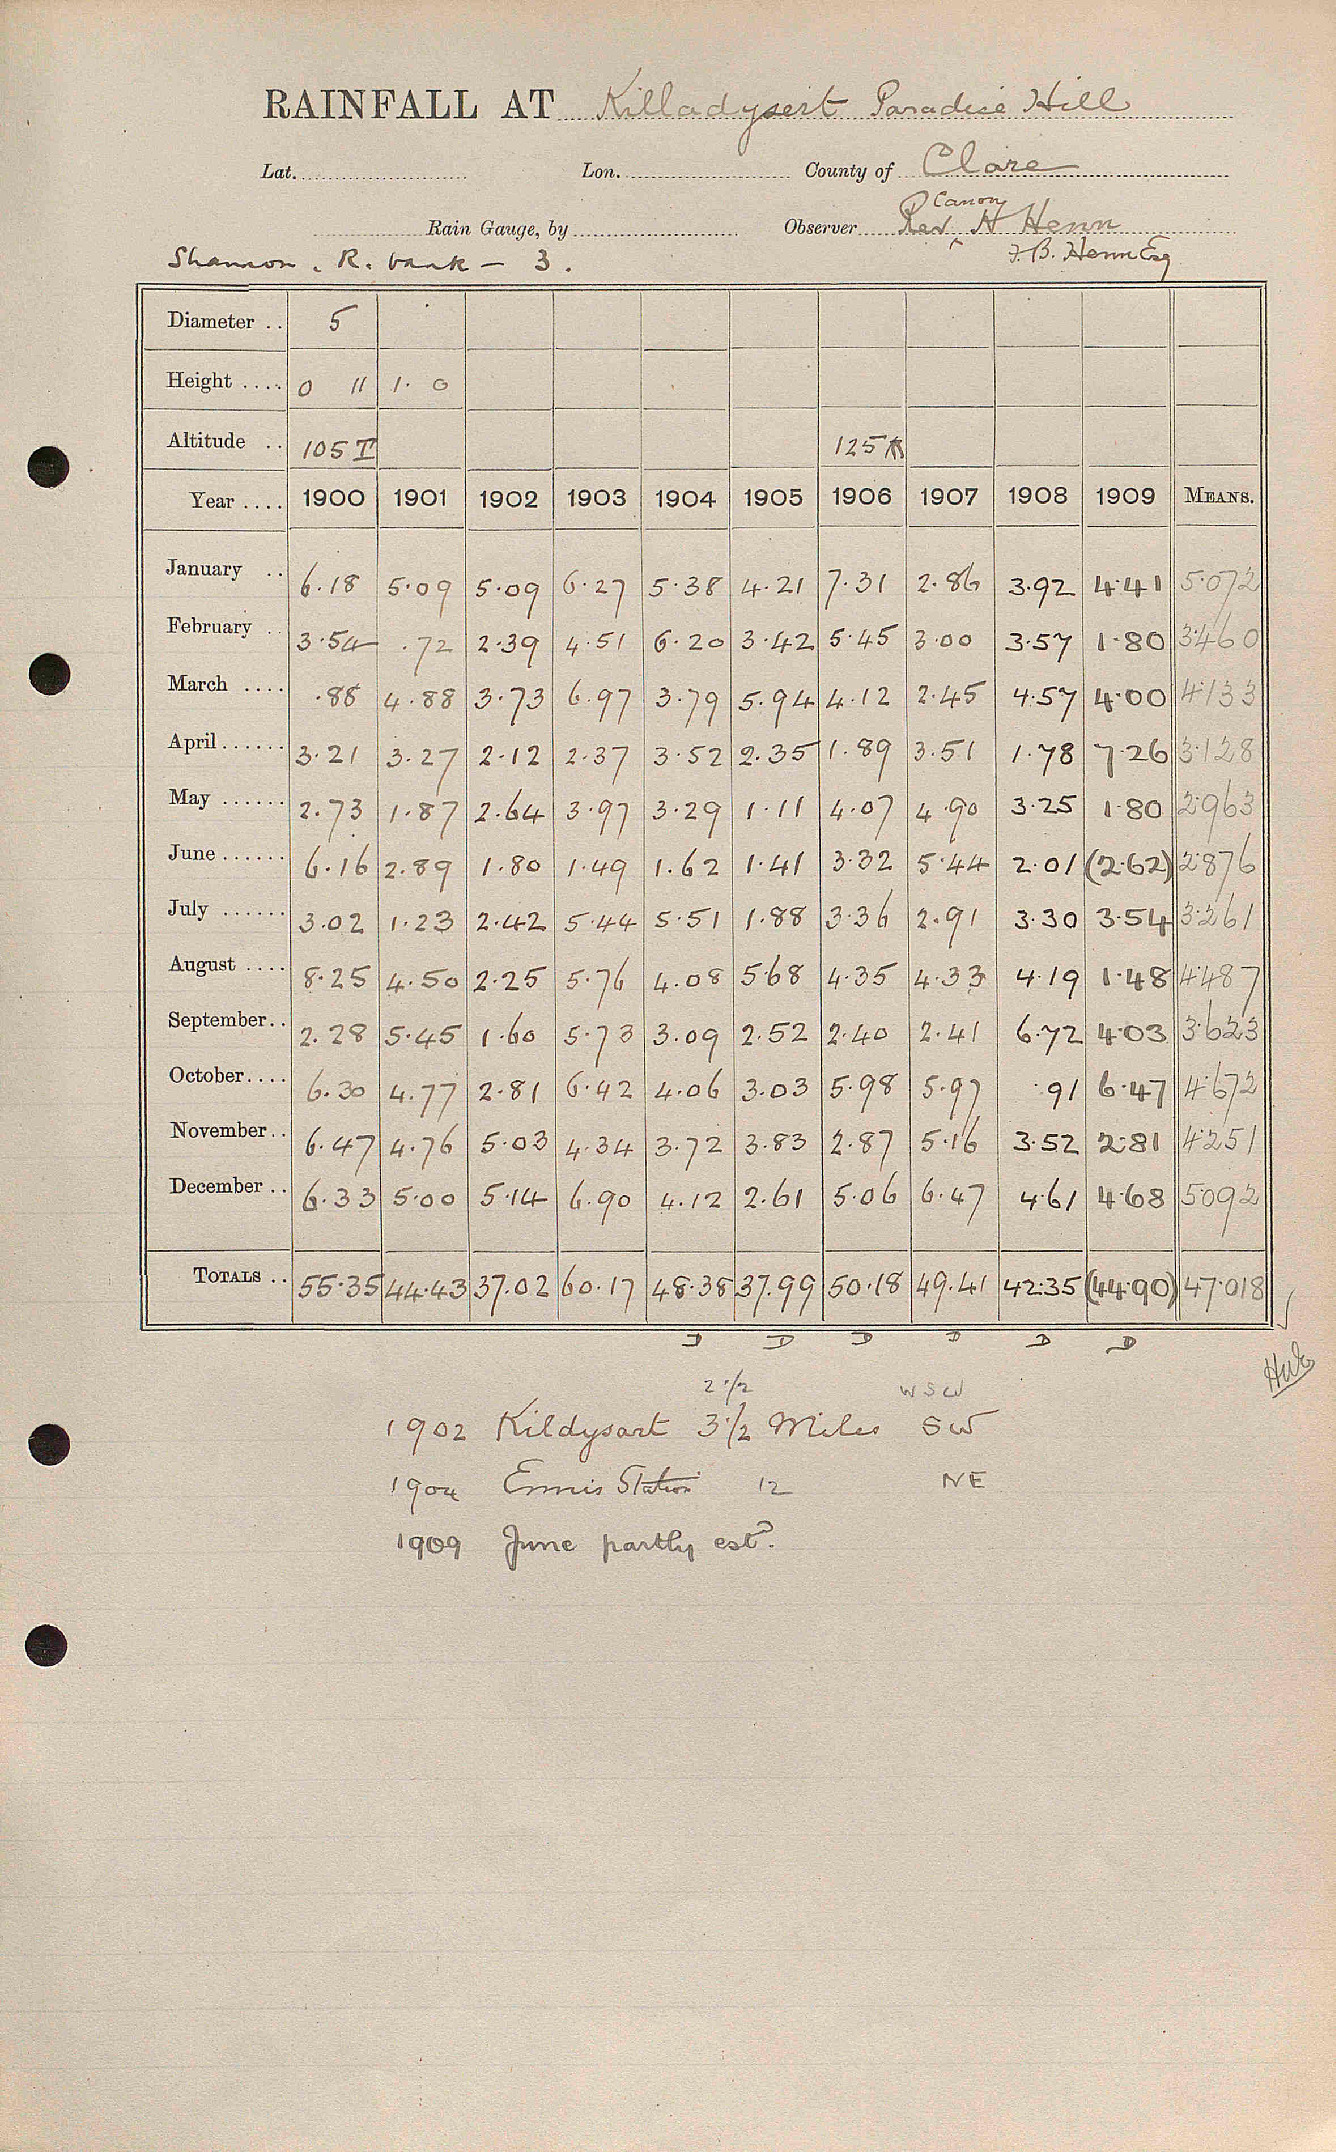 RAINFALL AT Killadysert Paradise Hill
Lat. Lon. County of Clare
Canon
Rain Gauge, by Observer Rev. H Henn
Shannon . R. bank - 3. F. B. Henn Esq
Diameter .. 5
Height .... 0 11 1. 0
Altitude .. 105 T 125
Year .... 1900 1901 1902 1903 1904 1905 1906 1907 1908 1909 MEANS.
January .. 6.18 5.09 5.09 6.27 5.38 4.21 7.31 2.86 3.92 4.41 5.072
February .. 3.54 .72 2.39 4.51 6.20 3.42 5.45 3.00 3.57 1.80 3.460
March .... .88 4.88 3.73 6.97 3.79 5.94 4.12 2.45 4.57 4.00 4.133
April...... 3.21 3.27 2.12 2.37 3.52 2.35 1.89 3.51 1.78 7.26 3.128
May ...... 2.73 1.87 2.64 3.97 3.29 1.11 4.07 4.90 3.25 1.80 2.963
June...... 6.16 2.89 1.80 1.49 1.62 1.41 3.32 5.44 2.01 (2.62) 2.876
July ...... 3.02 1.23 2.42 5.44 5.51 1.88 3.36 2.91 3.30 3.54 3.261
August .... 8.25 4.50 2.25 5.76 4.08 5.68 4.35 4.33 4.19 1.48 4.487
September.. 2.28 5.45 1.60 5.73 3.09 2.52 2.40 2.41 6.72 4.03 3.623
October.... 6.30 4.77 2.81 6.42 4.06 3.03 5.98 5.97 .91 6.47 4.672
November.. 6.47 4.76 5.03 4.34 3.72 3.83 2.87 5.16 3.52 2.81 4.251
December .. 6.33 5.00 5.14 6.90 4.12 2.61 5.06 6.47 4.61 4.68 5.092
TOTALS .. 55.35 44.43 37.02 60.17 48.38 37.99 50.18 49.41 42.35 (44.90) 47.018
D D D D D D
2 1/2 WSW
1902 Kildysart 3 1/2 Miles SW
1904 Ennis Station 12 NE
1909 June partly estd.